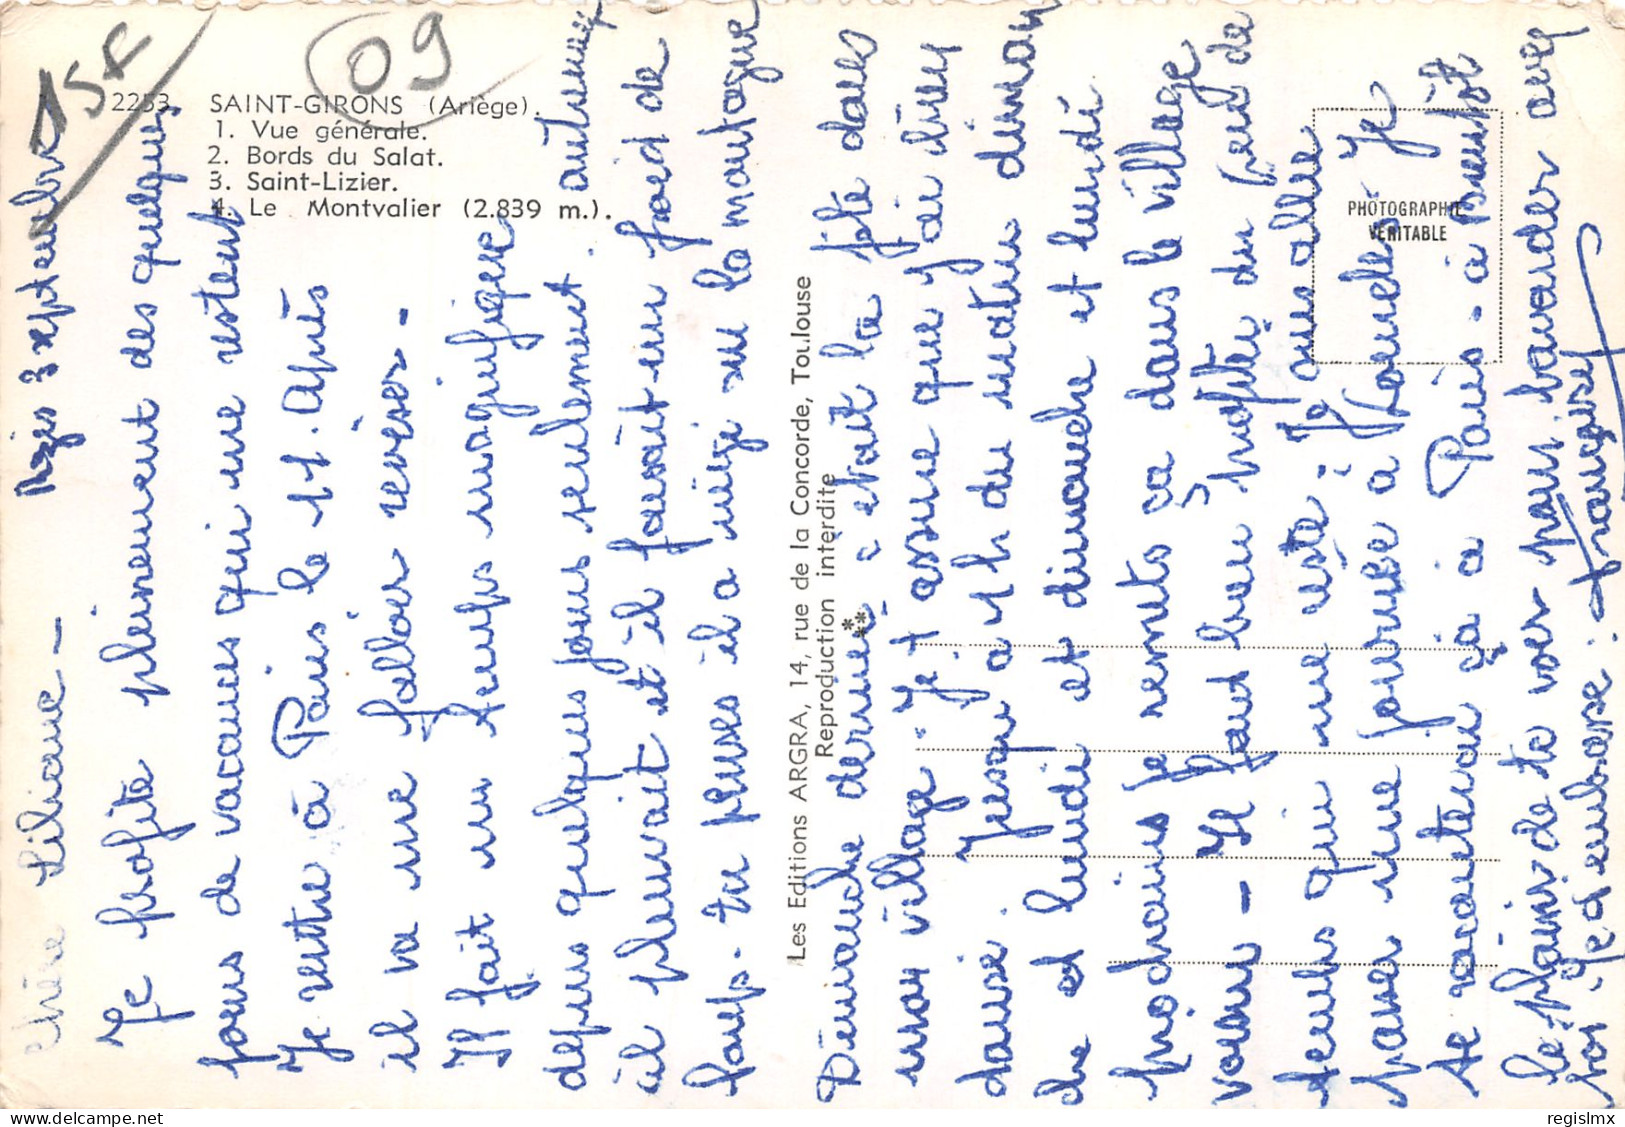 15F
09
2253. SAINT-GIRONS (Ariège).
1. Vue générale.
2. Bords du Salat.
3. Saint-Lizier.
4. Le Montvalier (2.839 m.).
Les Editions ARGRA, 14, rue de la Concorde, Toulouse
Reproduction interdite
PHOTOGRAPHIE
VÉRITABLE
3 septembre
chère Liliane -
Je profite pleinement des quelques
jours de vacances qui me restent
Je rentre à Paris le 11. Après
il va me falloir réviser -
Il fait un temps magnifique
depuis quelques jours seulement. autrement
il pleuvait et il faisait un froid de
loup. Tu penses il a neigé sur la montagne
Dimanche dernier c'était la fête dans
mon village. Je t'assure que j'ai bien
dansé. Jusqu'à 4h du matin diman
che et lundi et dimanche et lundi
prochains je remets ça dans le village
voisin - Il faut bien profiter du peu de
temps qui me reste. Je suis allée
passer une journée à Lourdes Je
te raconterai ça à Paris - à Bientôt
le plaisir de te voir pour bavarder avec
toi. Je t'embrasse : Françoise
regislmx